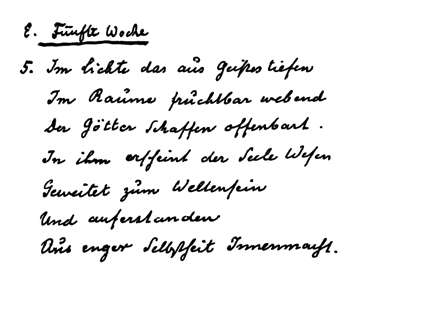 E. Fünfte Woche
5. Im Lichte das aus Geistestiefen
Im Raume fruchtbar webend
Der Götter Schaffen offenbart.
In ihm erscheint der Seele Wesen
Geweitet zum Weltensein
Und auferstanden
Aus enger Selbstheit Innenmacht.